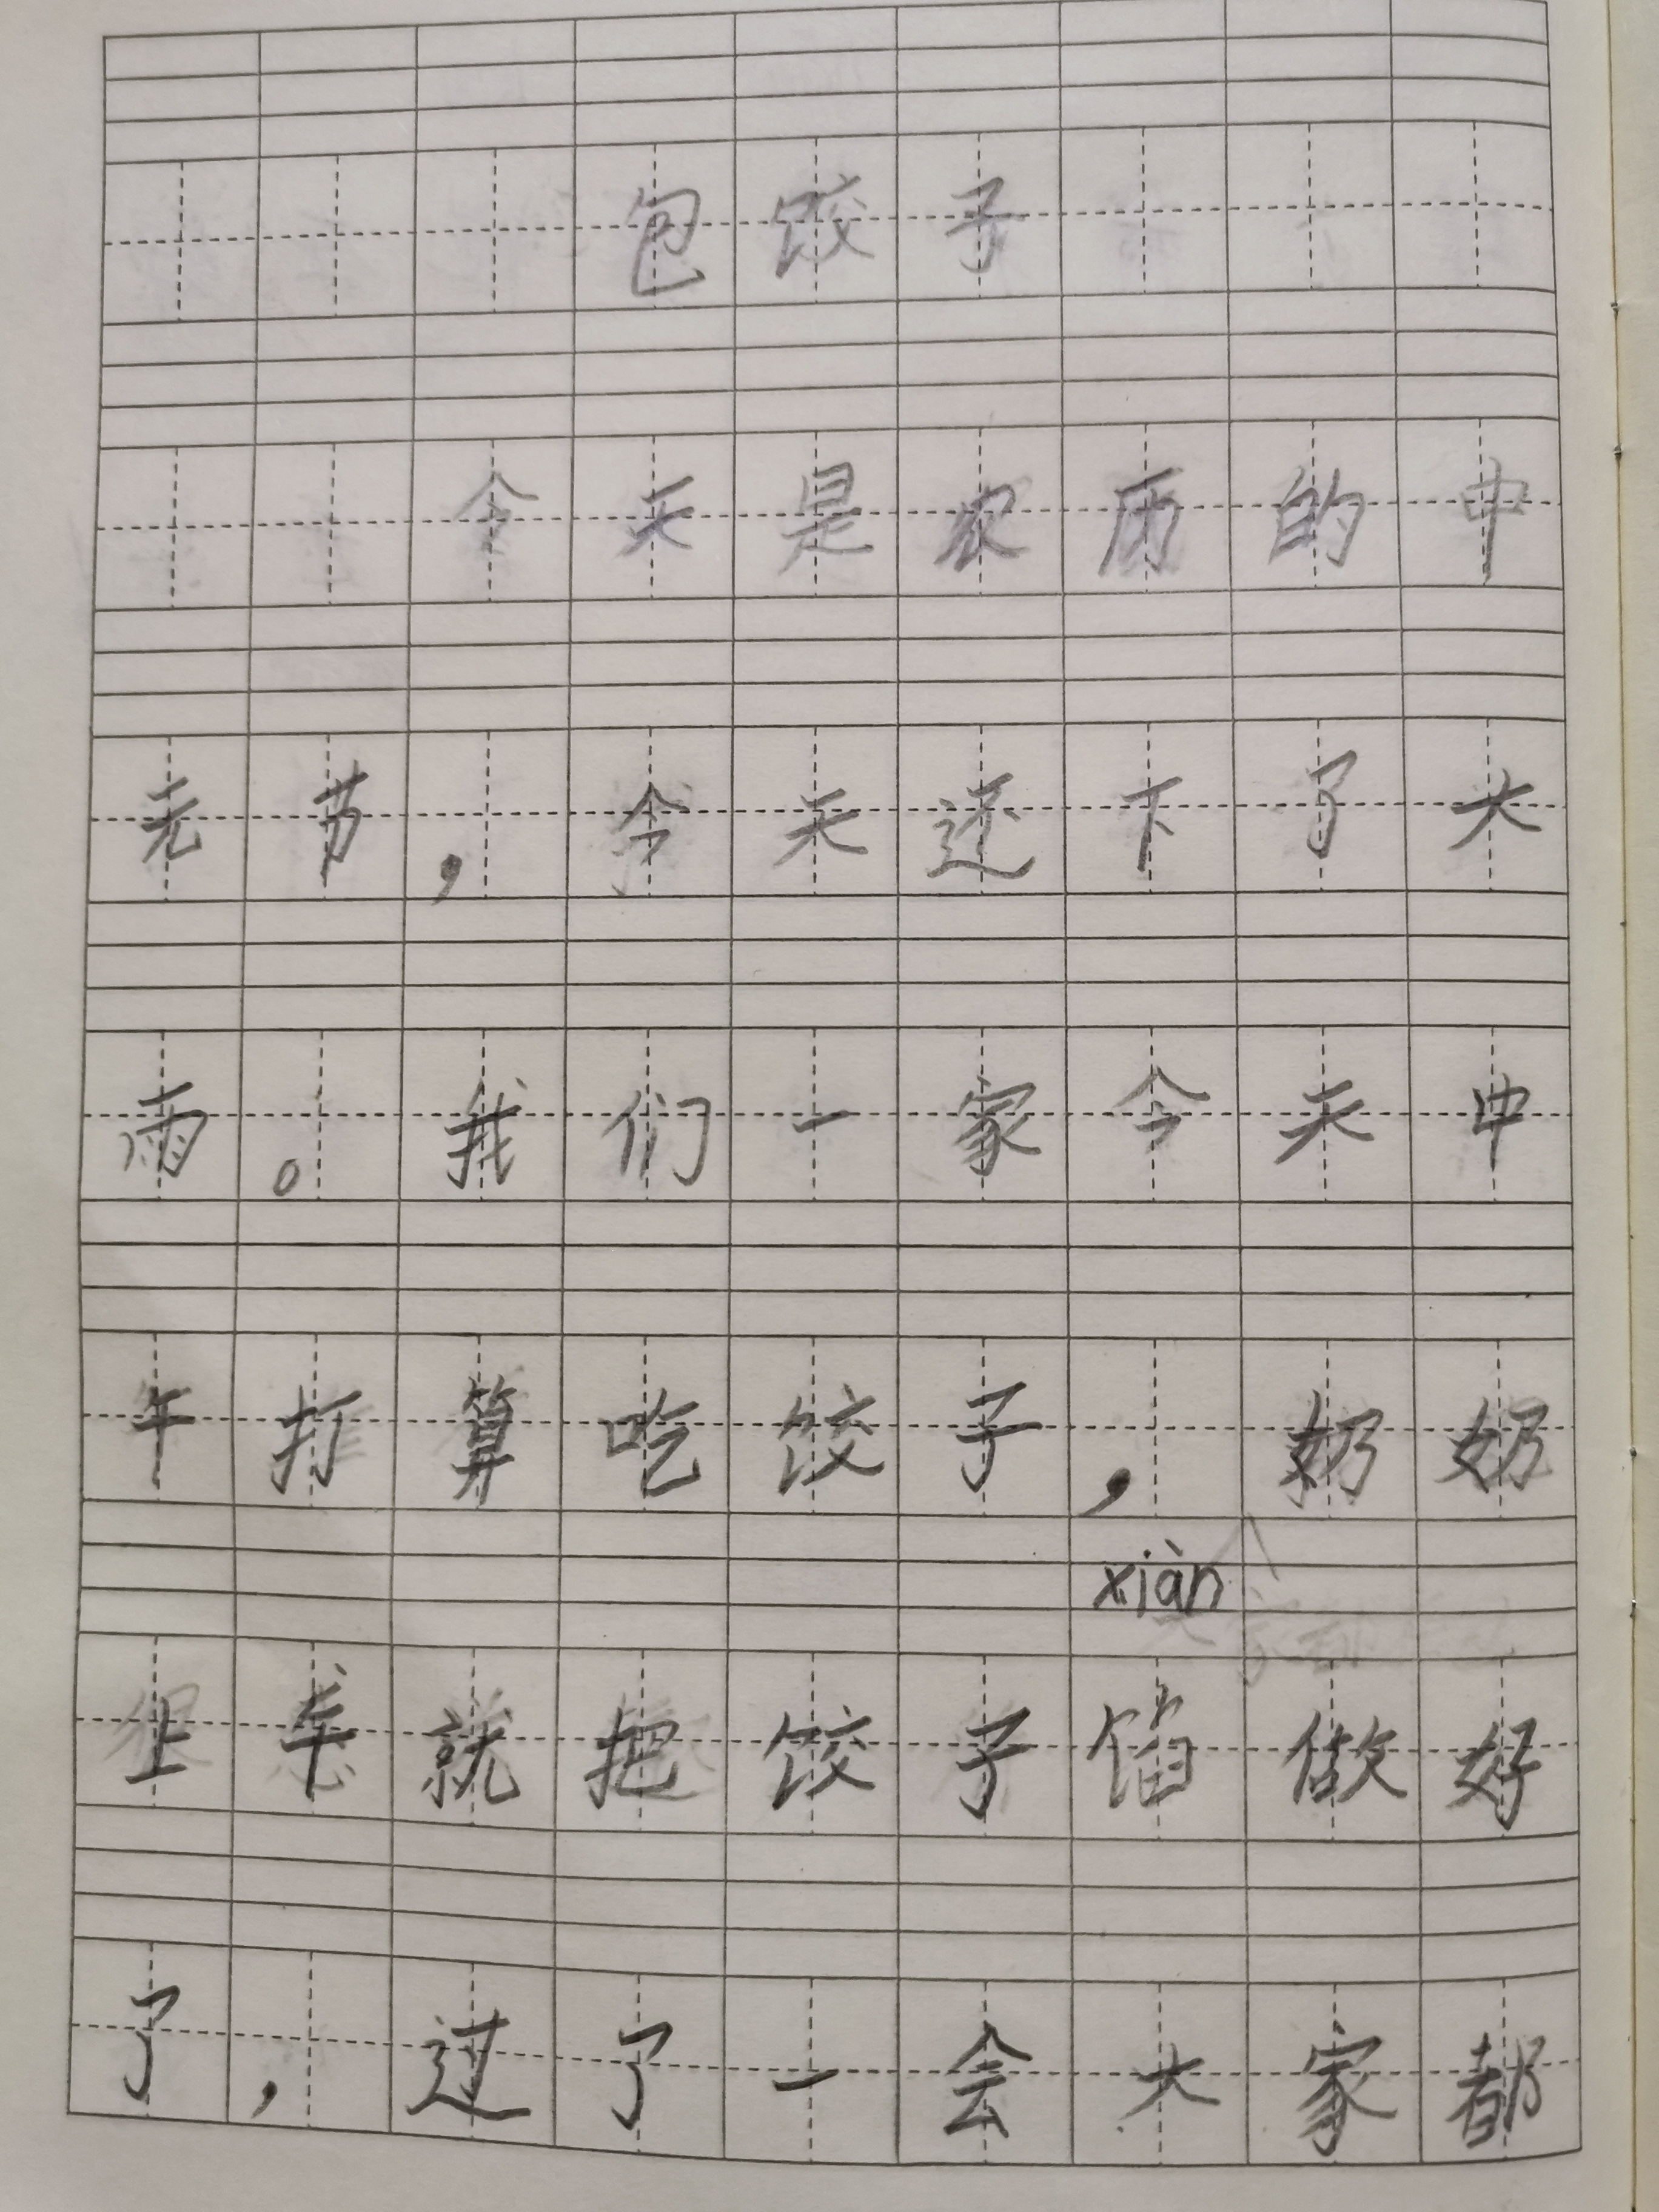 包饺子
今天是农历的中
元节，今天还下了大
雨。我们一家今天中
午打算吃饺子，奶奶
xiàn
上车就把饺子馅做好
了，过了一会大家都